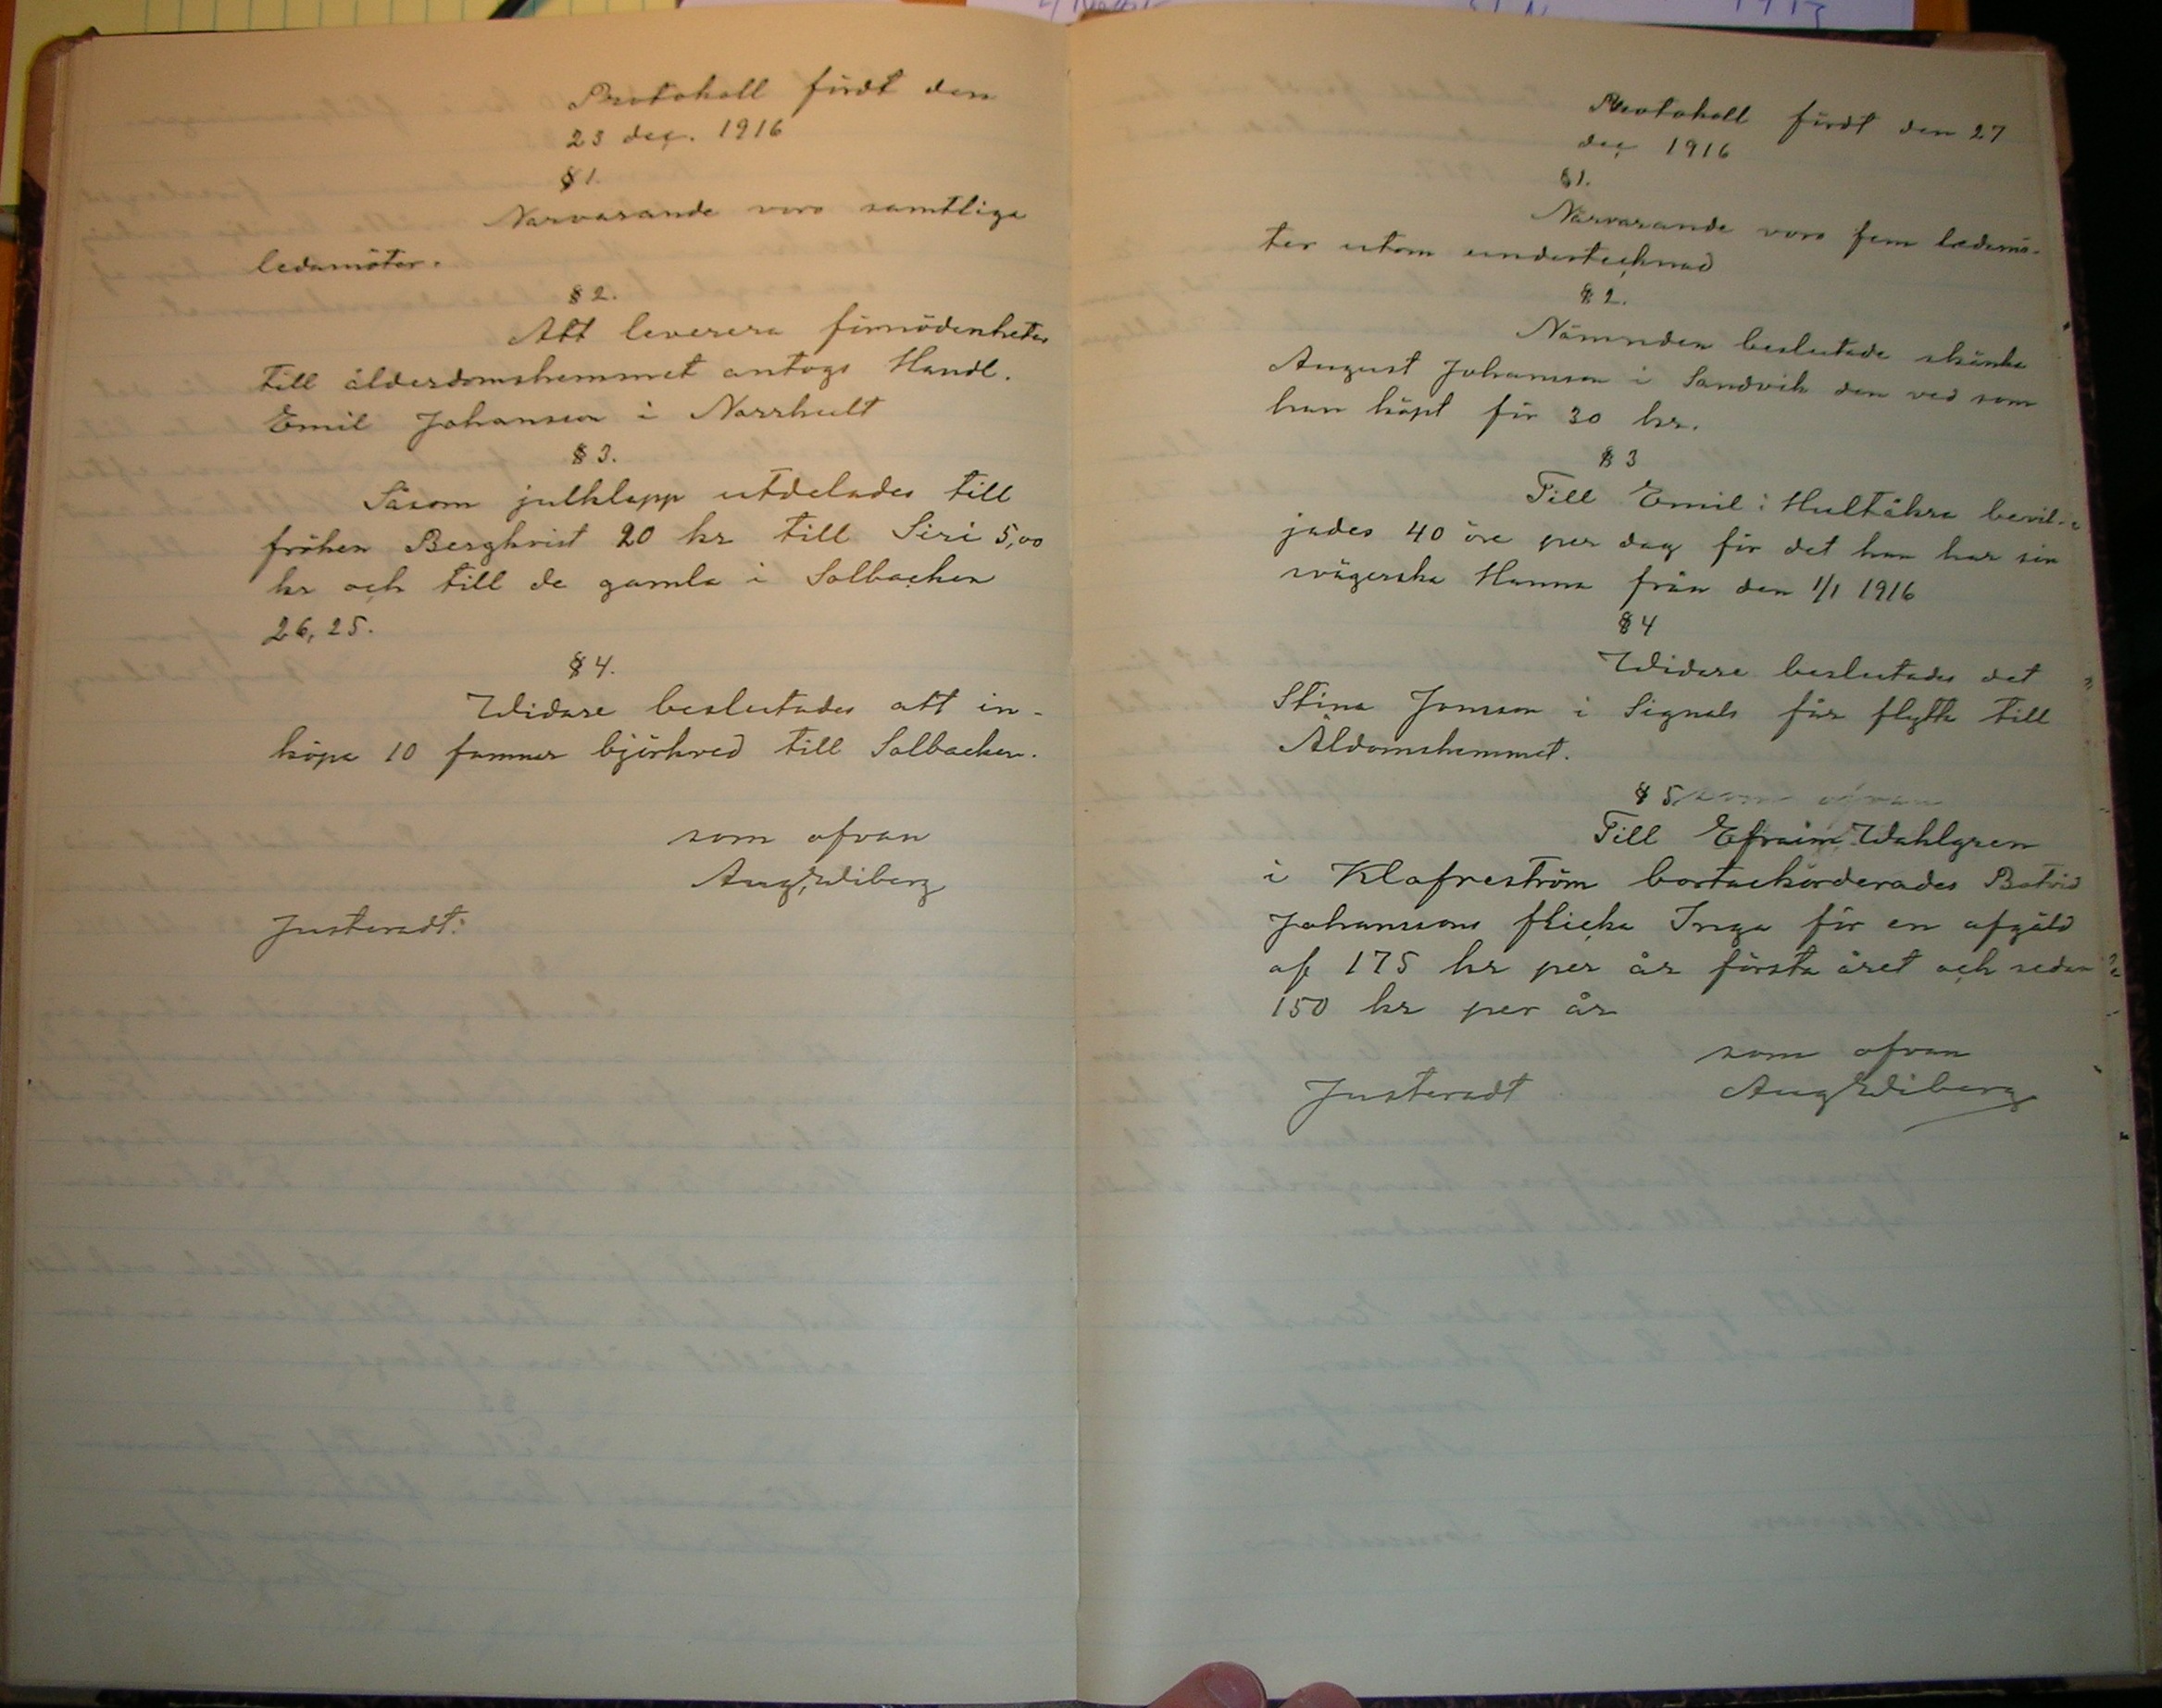 Protokoll fördt den
23 dec. 1916
§ 1.
Närvarande voro samtliga
ledamöter.
§ 2.
Att leverera förnödenheter
till ålderdomshemmet antogs Handl.
Emil Johansson i Norrhult
§ 3.
Såsom julklapp utdelades till
fröken Bergkvist 20 kr till Siri 5,00
kr och till de gamla i Solbacken
26,25.
§ 4.
Widare beslutades att in-
köpa 10 famnar björkved till Solbacken.
som ofvan
Aug Wiberg
Justeradt:
Protokoll fördt den 27
dec 1916
§ 1.
Närvarande voro fem ledamö-
ter utom undertecknad
§ 2.
Nämnden beslutade skänka
August Johansson i Sandvik den ved som
han köpt för 30 kr.
§ 3
Till Emil i Hultåkra bevil-
jades 40 öre per dag för det han har sin
svägerska Hanna från den 1/1 1916
§ 4
Widare beslutades det
Stina Jonsson i Signals får flytta till
Åldomshemmet.
§ 5 som ofvan
Till Efraim Wahlgren
i Klafreström bortackorderades Botvid
Johanssons flicka Inga för en afgäld
af 175 kr per år första året och sedan
150 kr per år
som ofvan
Justeradt Aug Wiberg